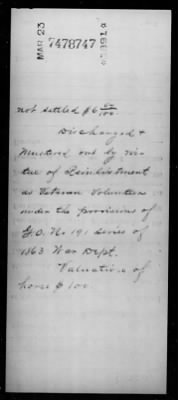 MAR 23
7478747
1916
not settled $6 60/100.
Discharged &
Mustered out by vir-
tue of Reinlistment
as Veteran Volunteer
under the provisions of
G.O. No 191 series of
1863 War Dept.
Valuation of
horse $ 100.